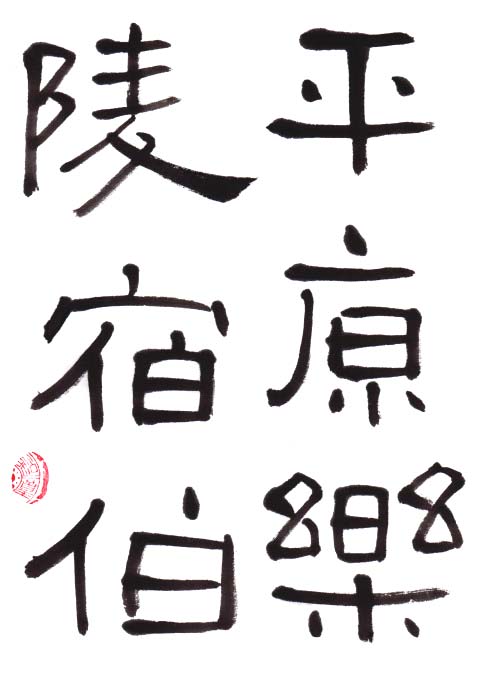 平原樂
陵宿伯